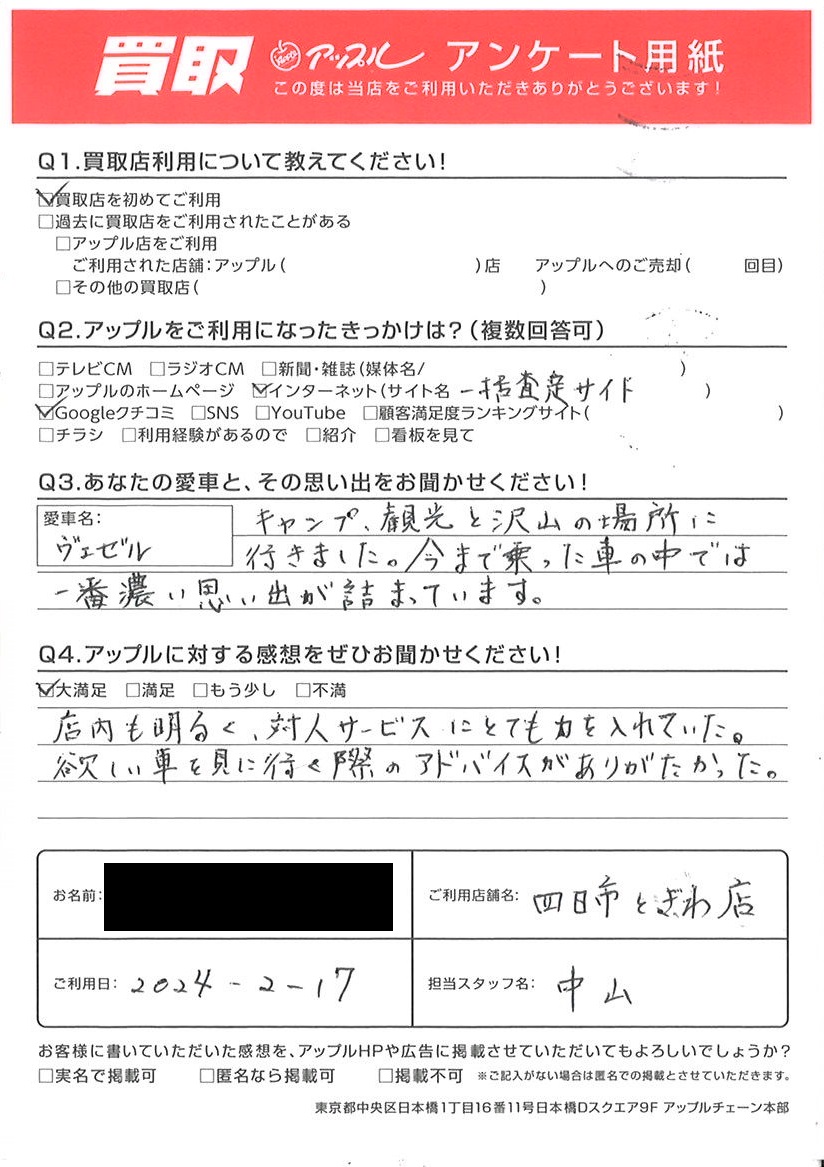 買取 アップル アンケート用紙
この度は当店をご利用いただきありがとうございます!
Q1.買取店利用について教えてください!
☑買取店を初めてご利用
□過去に買取店をご利用されたことがある
□アップル店をご利用
ご利用された店舗:アップル( )店 アップルへのご売却( 回目)
□その他の買取店( )
Q2.アップルをご利用になったきっかけは?(複数回答可)
□テレビCM □ラジオCM □新聞・雑誌(媒体名/ )
□アップルのホームページ ☑インターネット(サイト名 一括査定サイド )
☑Googleクチコミ □SNS □YouTube □顧客満足度ランキングサイト( )
□チラシ □利用経験があるので □紹介 □看板を見て
Q3.あなたの愛車と、その思い出をお聞かせください!
愛車名:
ヴェゼル
キャンプ、観光と沢山の場所に
行きました。今まで乗った車の中では
一番濃い思い出が詰まっています。
Q4.アップルに対する感想をぜひお聞かせください!
☑大満足 □満足 □もう少し □不満
店内も明るく、対人サービスにとても力を入れていた。
欲しい車を見に行く際のアドバイスがありがたかった。
お名前:
ご利用店舗名: 四日市ときわ店
ご利用日: 2024-2-17
担当スタッフ名: 中山
お客様に書いていただいた感想を、アップルHPや広告に掲載させていただいてもよろしいでしょうか?
□実名で掲載可 □匿名なら掲載可 □掲載不可 ※ご記入がない場合は匿名での掲載とさせていただきます。
東京都中央区日本橋1丁目16番11号日本橋Dスクエア9F アップルチェーン本部